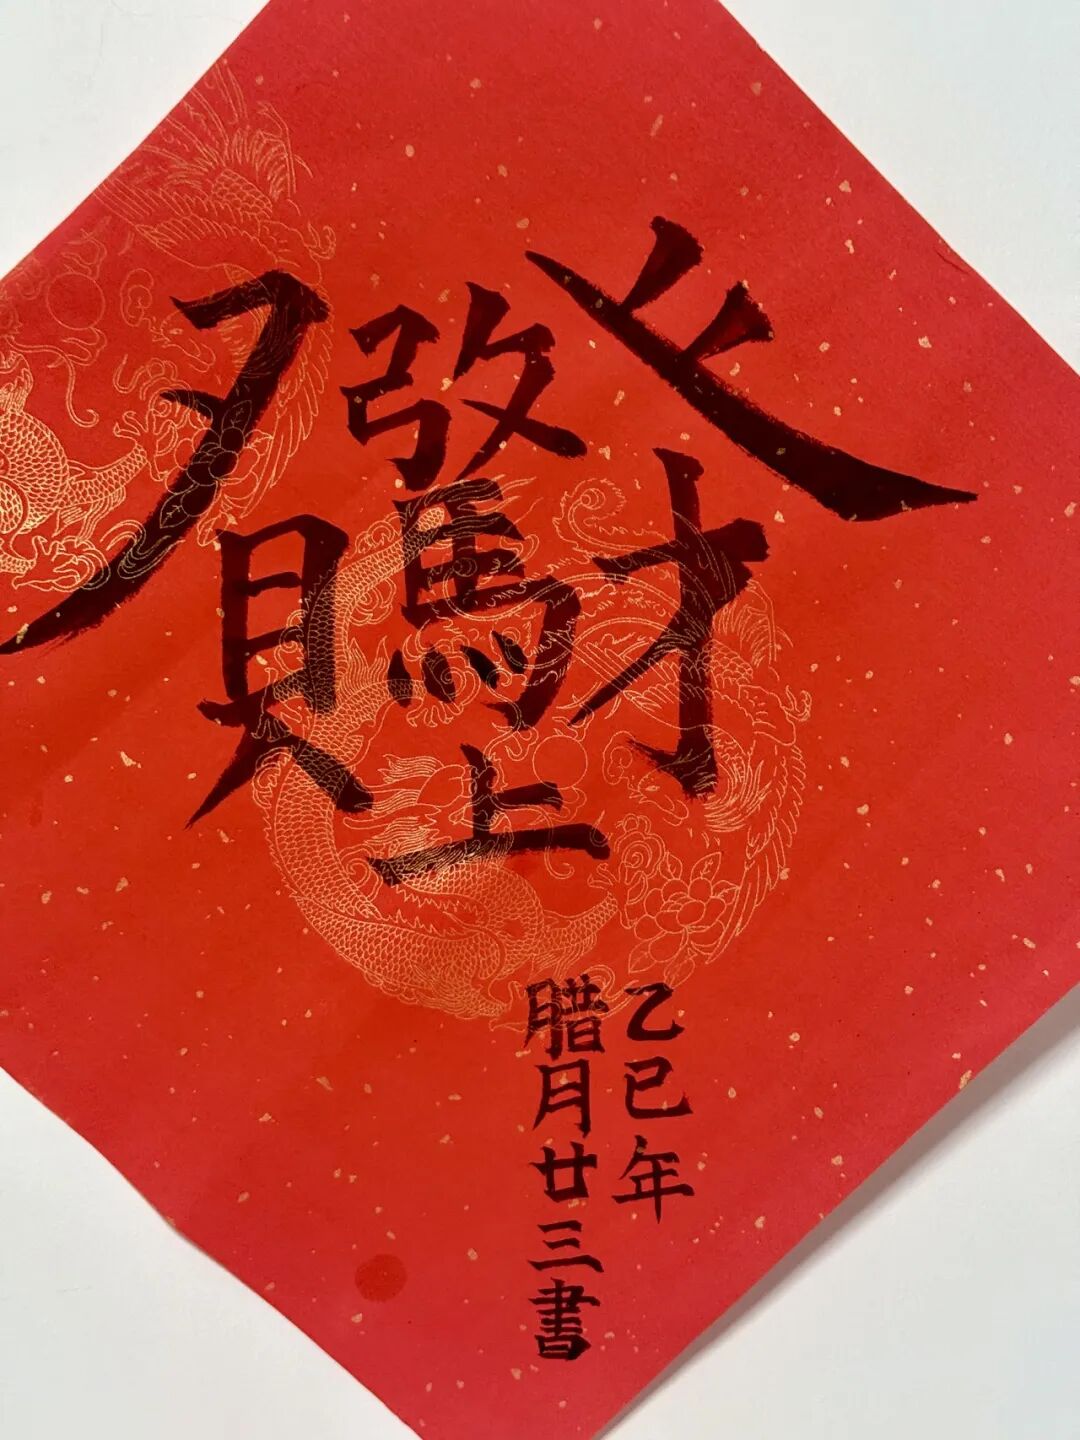 馬上發財
乙巳年
腊月廿三書